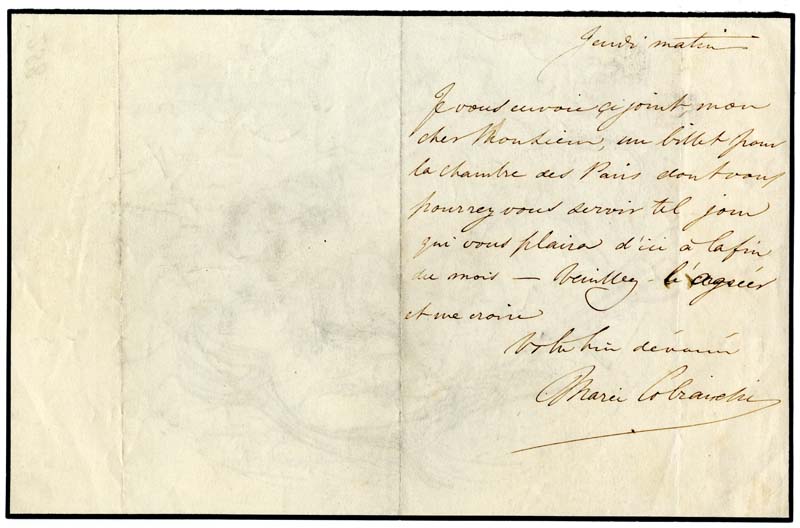 Jeudi matin
Je vous envoie çi joint, mon
cher Monsieur, un billet pour
la chambre des Pairs dont vous
pourrez vous servir tel jour
qui vous plaira d'ici à la fin
du mois — Veuillez l'agréer
et me croire
Votre bien dévoué
Marie